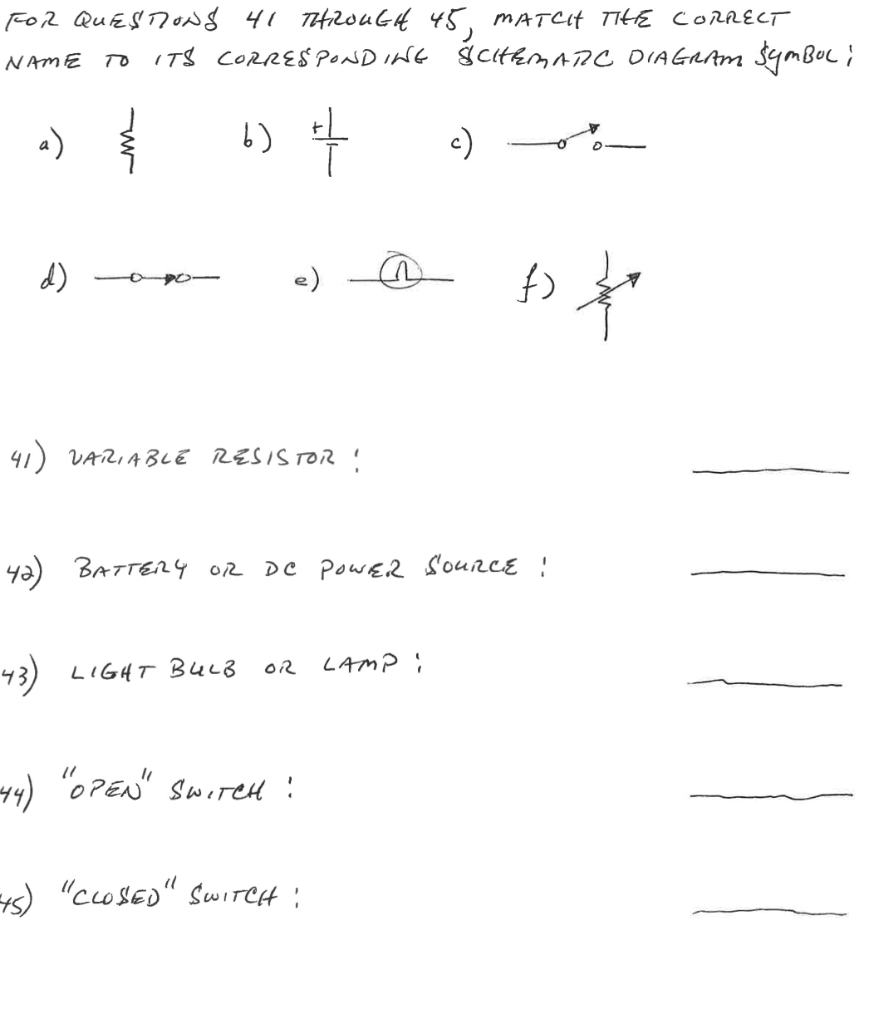 FOR QUESTIONS 41 THROUGH 45, MATCH THE CORRECT
NAME TO ITS CORRESPONDING SCHEMATIC DIAGRAM SYMBOL:
a) b) + c)
d) e) f)
41) VARIABLE RESISTOR:
42) BATTERY OR DC POWER SOURCE:
43) LIGHT BULB OR LAMP:
44) "OPEN" SWITCH:
45) "CLOSED" SWITCH: